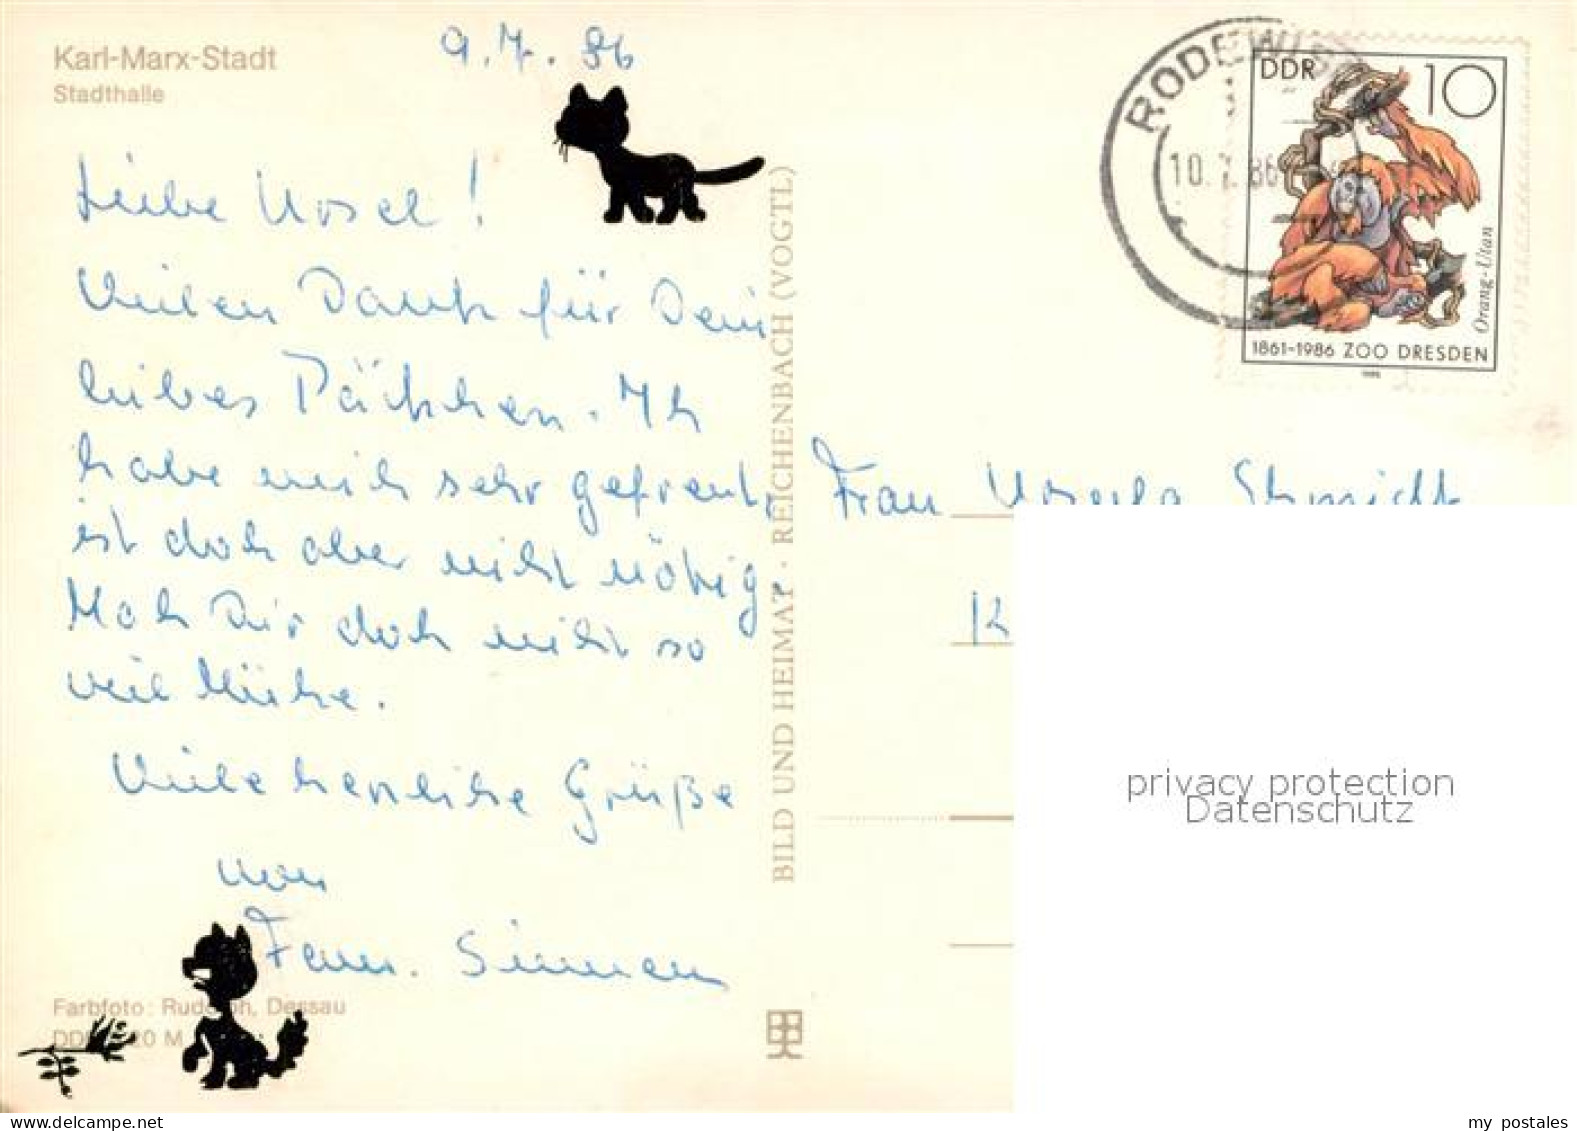 Karl-Marx-Stadt
Stadthalle
9.7.86
Liebe Ursel!
Vielen Dank für Dein
liebes Päckchen. Ich
habe mich sehr gefreut,
ist doch aber nicht nötig.
Mach Dir doch nicht so
viel Mühe.
Viele herzliche Grüße
von
Fam. Simmen
Farbfoto: Rudolph, Dessau
BILD UND HEIMAT · REICHENBACH (VOGTL)
RODEWIS
10.7.86
DDR
10
Orang-Utan
1861-1986 ZOO DRESDEN
Frau Ursula Schmidt
K
privacy protection
Datenschutz
my postales